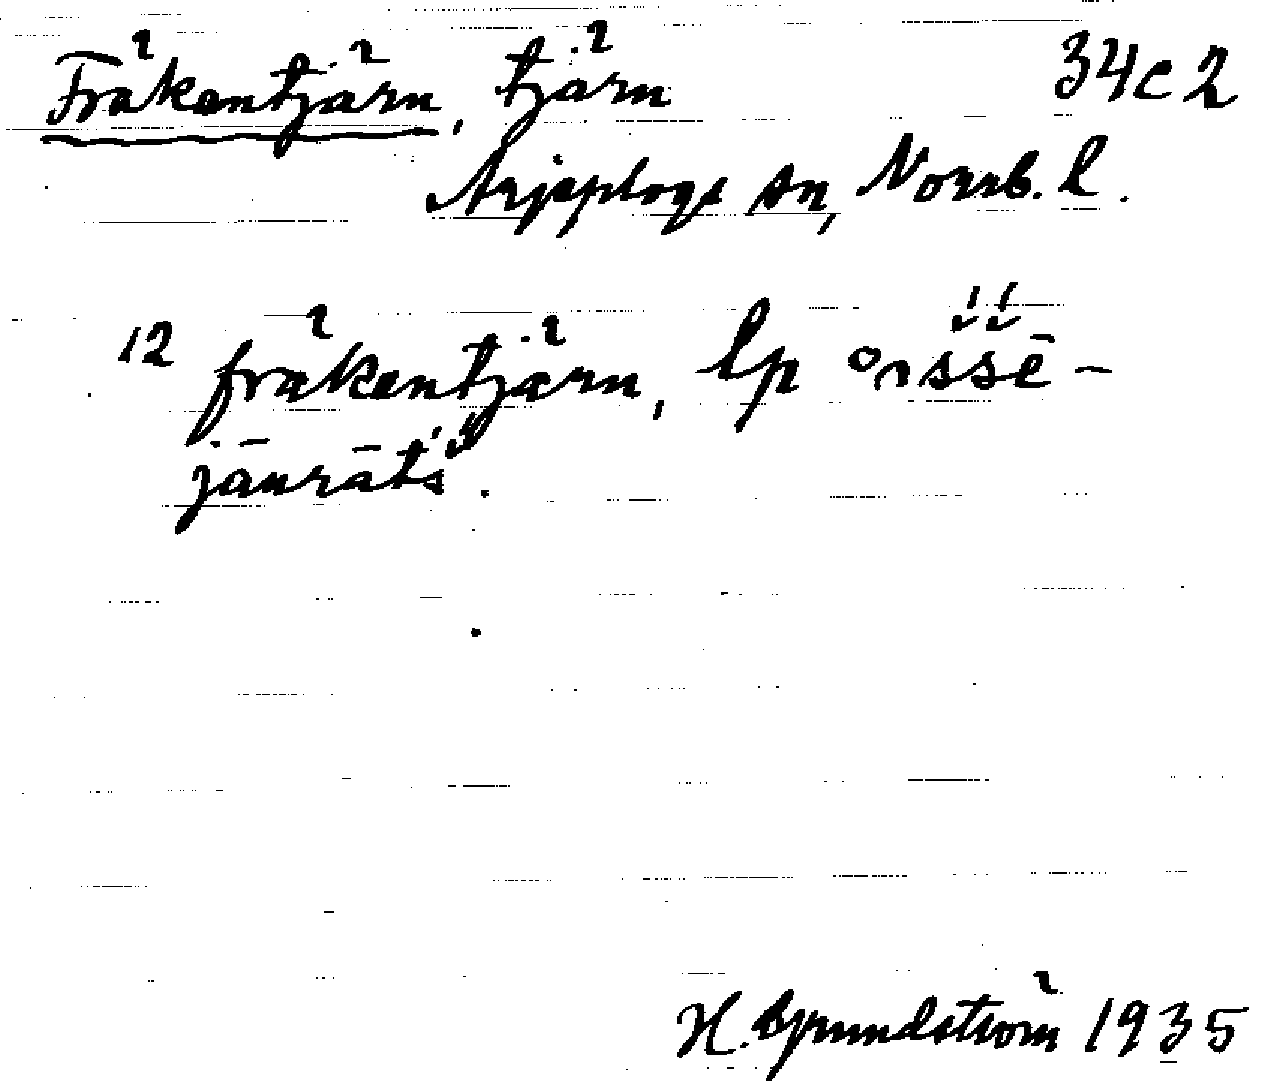 Fräkentjärn, tjärn 34c2
Arjeplogs sn, Norrb. l.
12 fräkentjärn, lp
H. Grundström 1935